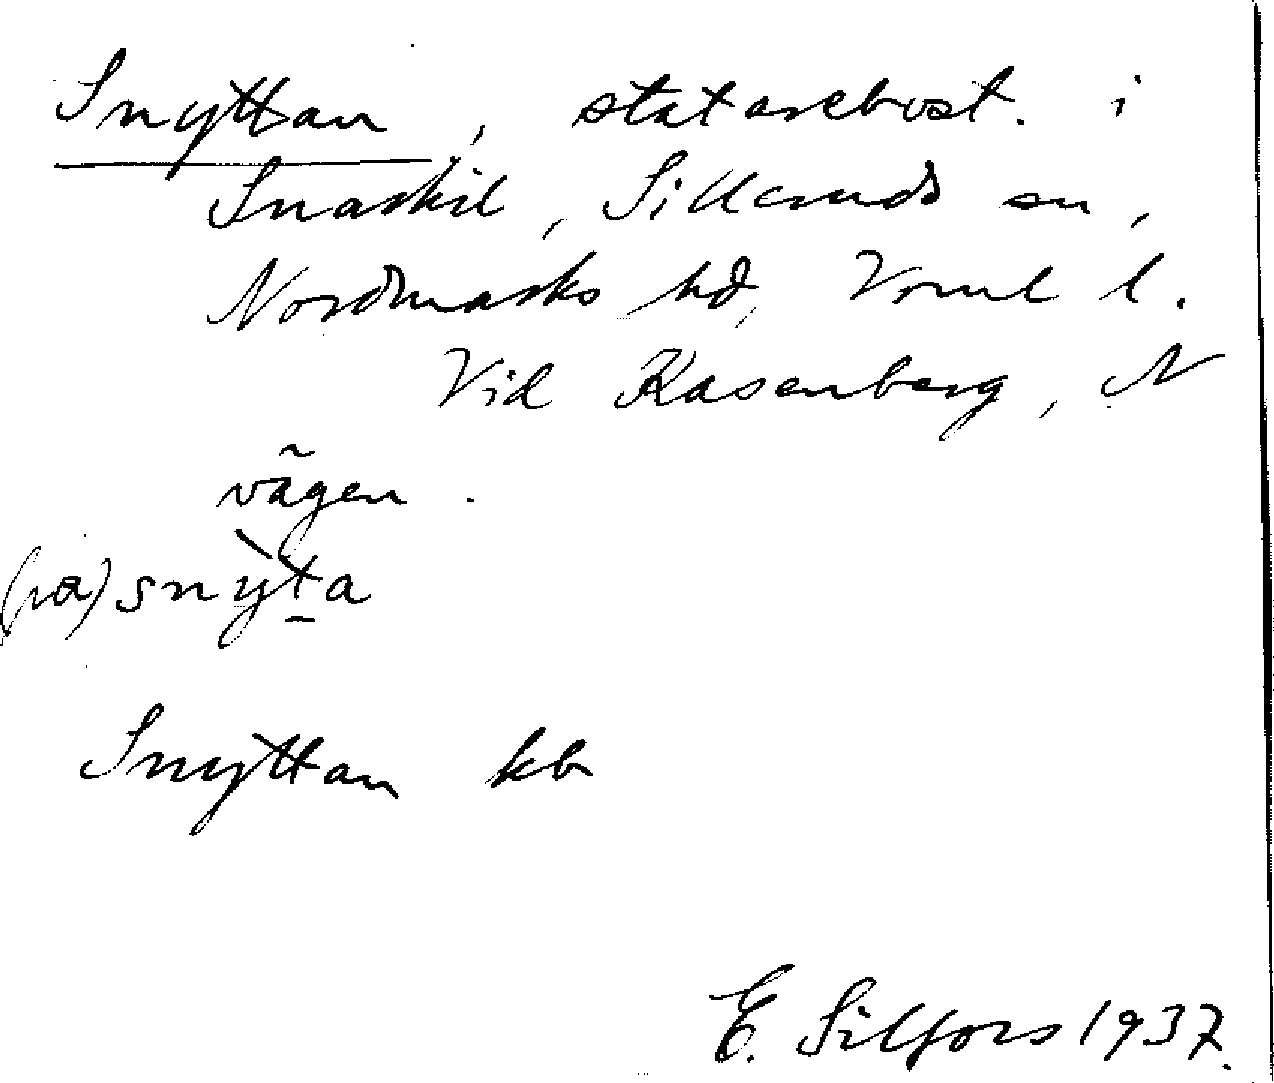 Snyttan, statarebost. i
Snarkil, Silleruds sn,
Nordmarks hd, Vrml l.
Vid Kasenberg, N
vägen.
(på) snỳt̠a
Snyttan kb
E. Silfors 1937.